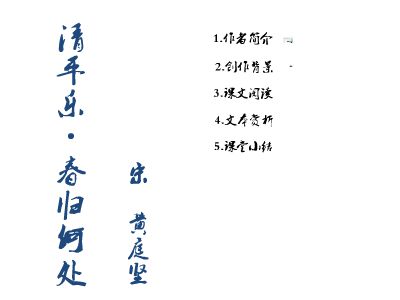 清平乐·春归何处
宋 黄庭坚
1.作者简介
2.创作背景
3.课文阅读
4.文本赏析
5.课堂小结